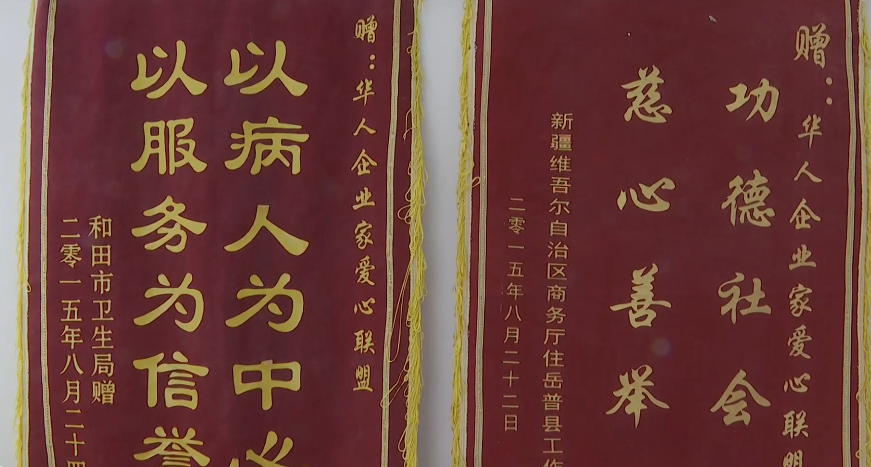 赠：华人企业家爱心联盟
以病人为中心
以服务为信誉
和田市卫生局赠
二零一五年八月二十四
赠：华人企业家爱心联盟
功德社会
慈心善举
新疆维吾尔自治区商务厅住岳普县工作
二零一五年八月二十二日